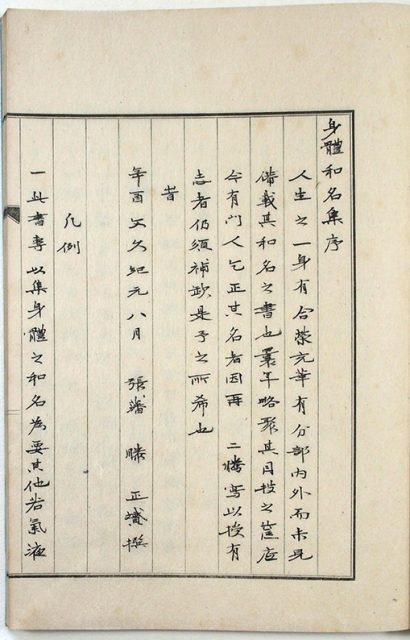 身體和名集序
人生之一身有合榮充華有分部内外而未見
備載其和名之書也曩年略聚其目投之筐底
今有門人乞正其名者因再　二謄寫以授有
志者仍須補缺是予之所希也
旹
年酉文久紀元八月　張藩　勝　正 撰
凡例
一此書専以集身體之和名為要其他若氣液